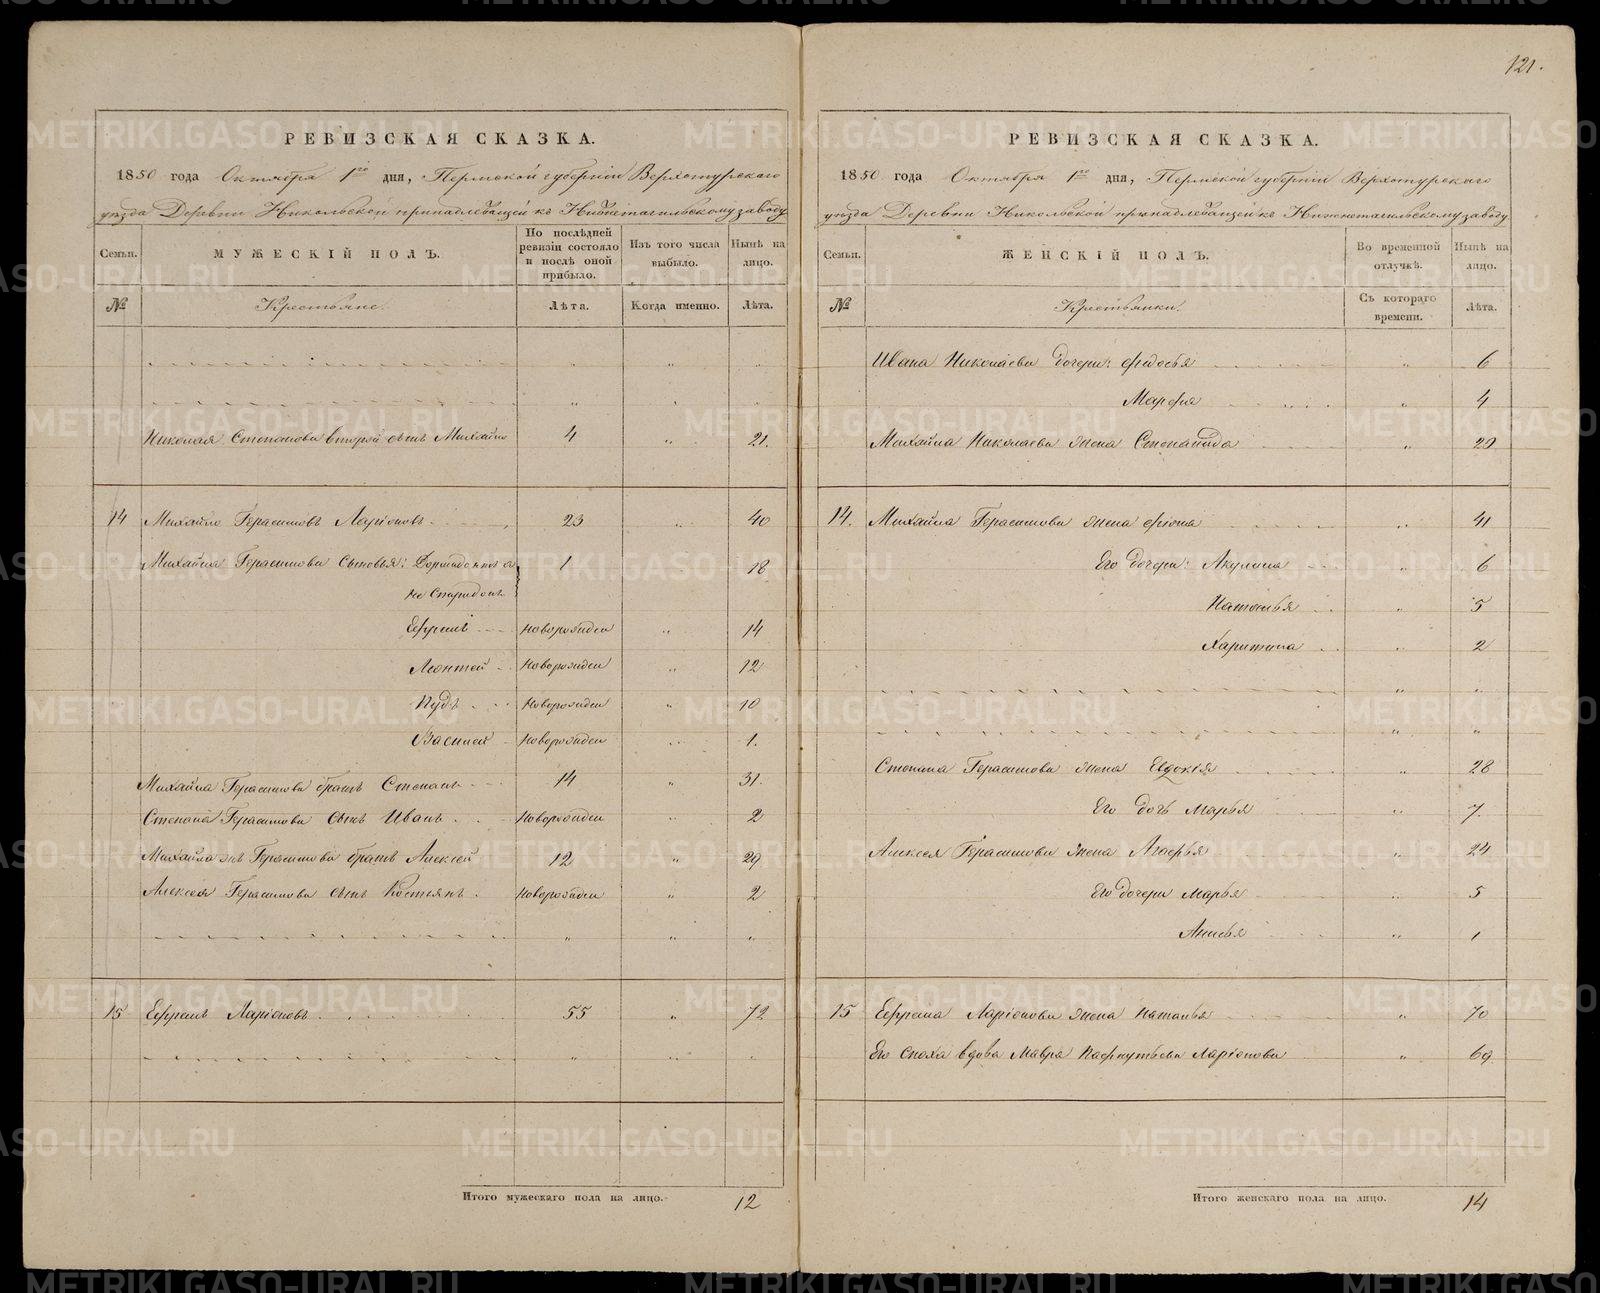 121.
РЕВИЗСКАЯ СКАЗКА.
1850 года Октября 1го дня, Пермской губернии Верхотурскаго
уѣзда Деревни Никольской принадлежащей къ Нижнетагильскому заводу
Семьи. МУЖЕСКІЙ ПОЛЪ. По послѣдней ревизіи состояло и послѣ оной прибыло. Изъ того числа выбыло. Нынѣ на лицо.
№ Крестьяне. Лѣта. Когда именно. Лѣта.
Николая Степанова второй сынъ Михайло 4 „ 21.
14 Михайло Герасимовъ Ларіоновъ 23 „ 40
Михайла Герасимова сыновья: 1 18
не Спиридонъ
Ефремъ новорожден „ 14
Леонтей новорожден „ 12
Пудъ новорожден „ 10
Василей новорожден „ 1.
Михайла Герасимова братъ Степанъ 14 „ 31.
Степана Герасимова сынъ Иванъ новорожден „ 2
Михайла же Герасимова братъ Алексей 12 „ 29
Алексея Герасимова сынъ Костьянъ новорожден „ 2
15 Ефремъ Ларіоновъ 55 „ 72
Итого мужескаго пола на лицо. 12
РЕВИЗСКАЯ СКАЗКА.
1850 года Октября 1го дня, Пермской губерніи Верхотурскаго
уѣзда Деревни Никольской принадлежащей къ Нижнетагильскому заводу
Семьи. ЖЕНСКІЙ ПОЛЪ. Во временной отлучкѣ. Нынѣ на лицо.
№ Крестьянки. Съ котораго времени. Лѣта.
Ивана Николаева дочери: Федосья „ 6
Марфа „ 4
Михайла Николаева жена Степанида „ 29
14. Михайла Герасимова жена Фіона „ 41
Его дочери: Акулина „ 6
Наталья „ 5
Харитина „ 2
Степана Герасимова жена Евдокія „ 28
Его дочь Марья „ 7.
Алексея Герасимова жена Агафья „ 24
Его дочери Марья „ 5
Анисья „ 1
15 Ефрема Ларіонова жена Наталья „ 70
Его сноха вдова Мавра Пафнутьева Ларіонова „ 69
Итого женскаго пола на лицо. 14
METRIKI.GASO-URAL.RU